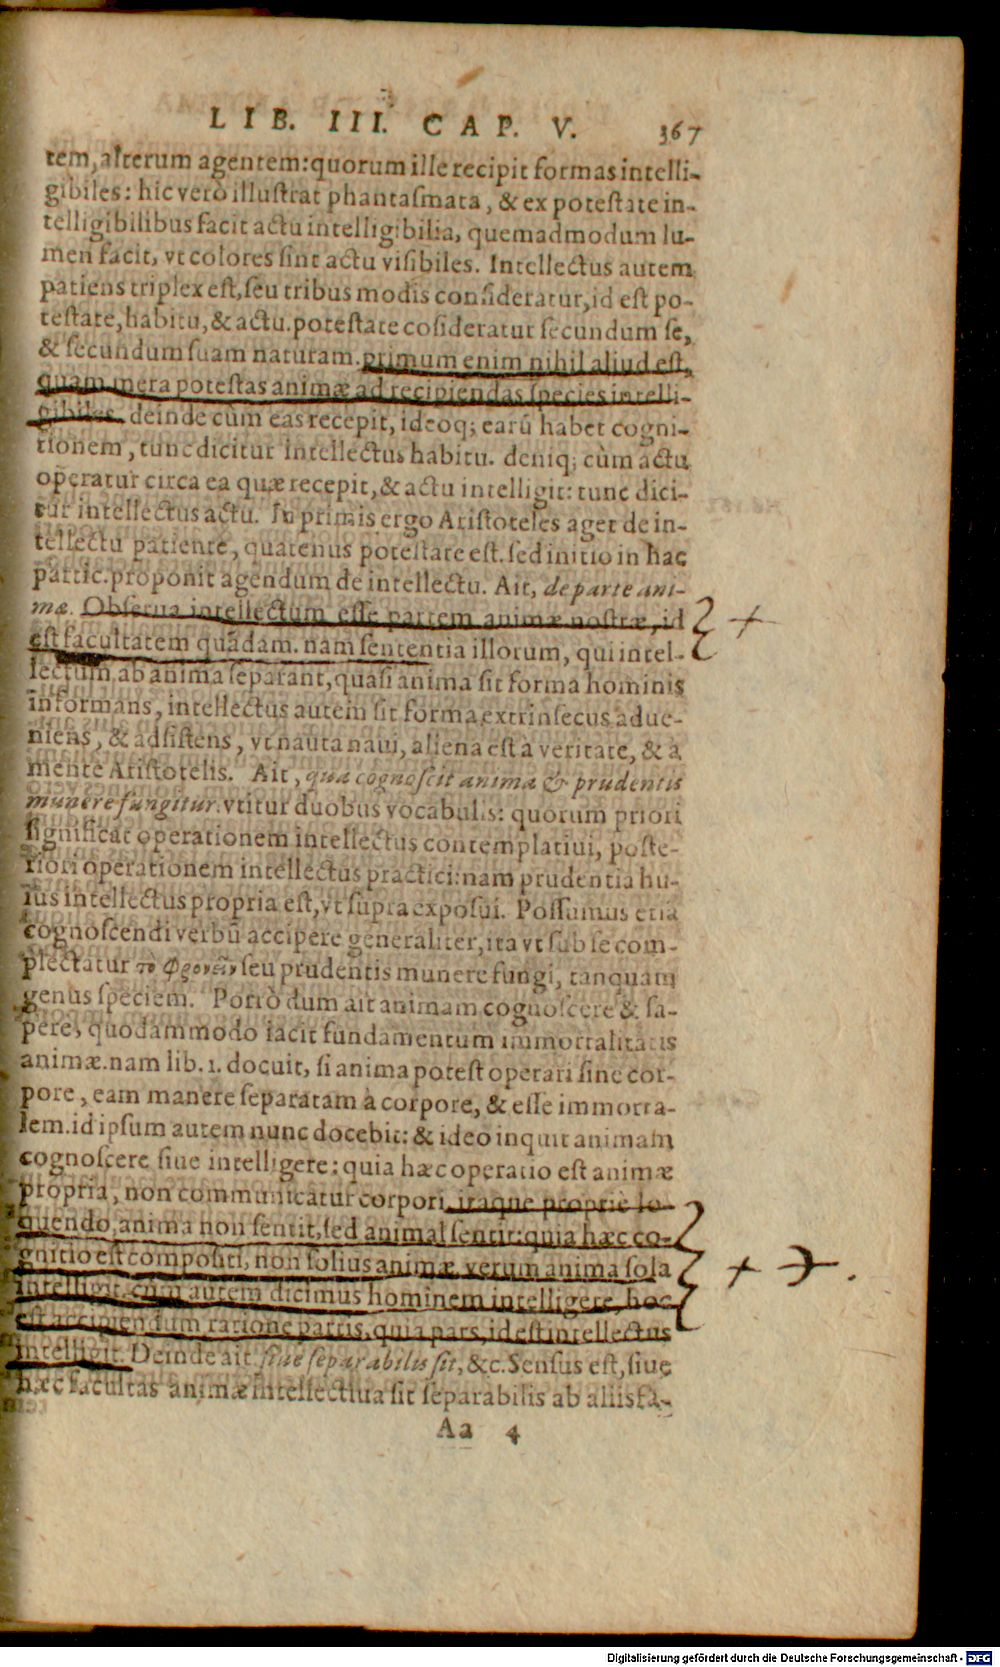 LIB. III. CAP. V. 367
tem, alterum agentem: quorum ille recipit formas intelli-
gibiles: hic verò illustrat phantasmata, & ex potestate in-
telligibilibus facit actu intelligibilia, quemadmodum lu-
men facit, vt colores sint actu visibiles. Intellectus autem
patiens triplex est, seu tribus modis consideratur, id est po-
testate, habitu, & actu. potestate cōsideratur secundum se,
& secundum suam naturam. primum enim nihil aliud est,
quam mera potestas animæ ad recipiendas species intelli-
gibiles. deinde cùm eas recepit, ideoq; earū habet cogni-
tionem, tunc dicitur intellectus habitu. deniq; cùm actu
operatur circa ea quæ recepit, & actu intelligit: tunc dici-
tur intellectus actu. In primis ergo Aristoteles aget de in-
tellectu patiente, quatenus potestate est. sed initio in hac
partic. proponit agendum de intellectu. Ait, de parte ani-
mæ. Obserua intellectum esse partem animæ nostræ, id
est facultatem quādam. nam sententia illorum, qui intel-
lectum ab anima separant, quasi anima sit forma hominis
informans, intellectus autem sit forma extrinsecus adue-
niens, & adsistens, vt nauta naui, aliena est a veritate, & à
mente Aristotelis. Ait, qua cognoscit anima & prudentis
munere fungitur. vtitur duobus vocabulis: quorum priori
significat operationem intellectus contemplatiui, poste-
riori operationem intellectus practici: nam prudentia hu-
ius intellectus propria est, vt supra exposui. Possumus etiā
cognoscendi verbū accipere generaliter, ita vt sub se com-
plectatur τὸ φρονεῖν seu prudentis munere fungi, tanquam
genus speciem. Porrò dum ait animam cognoscere & sa-
pere, quodammodo iacit fundamentum immortalitatis
animæ. nam lib. 1. docuit, si anima potest operari sine cor-
pore, eam manere separatam à corpore, & esse immorta-
lem. id ipsum autem nunc docebit: & ideo inquit animam
cognoscere siue intelligere: quia hæc operatio est animæ
propria, non communicatur corpori. itaque propriè lo-
quendo, anima non sentit, sed animal sentit: quia hæc co-
gnitio est compositi, non solius animæ. verum anima sola
intelligit. cum autem dicimus hominem intelligere, hoc
est accipiendum ratione partis, quia pars, id est intellectus
intelligit. Deinde ait siue separabilis sit, &c. Sensus est, siue
hæc facultas animæ intellectiua sit separabilis ab aliis fa-
Aa 4
Digitalisierung gefördert durch die Deutsche Forschungsgemeinschaft - DFG